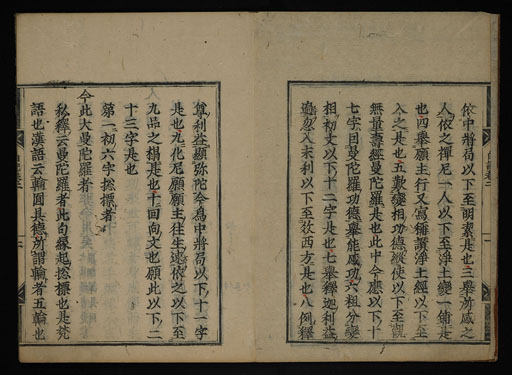 依中將局以下至明素是也三舉所感之
人依之禪尼一人以下至淨土變一鋪是
也四舉願主行又寫稱讚淨土經以下至
入之是也五數變相功德縱使以下至觀
無量壽經曼陀羅是也此中今應以下十
七字因曼陀羅功德舉能感功六粗分變
相初文以下十二字是也七舉釋迦利益
遍以下至效西方是也八例釋
尊利益顯弥陀今為中將局以下十一字
是也九化尼願願主往生速依之以下至
九品之榻是也十回向文也願此以下二
十三字是也
第一初六字惣標者
今此大曼陀羅者
私釋云曼陀羅者此句緣起惣標也是梵
語也漢語云輪圓具德所謂輪者五輪也